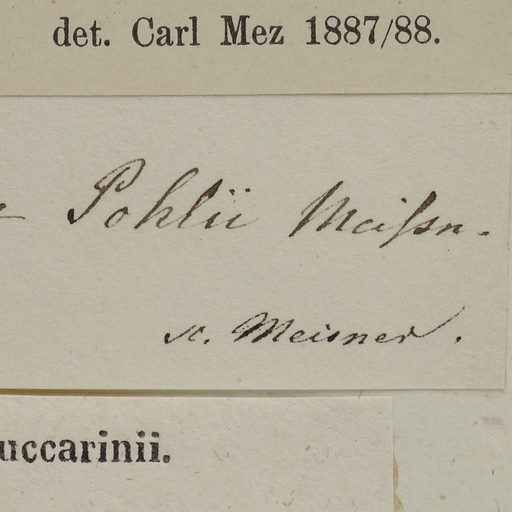 det. Carl Mez 1887/88.
Pohlii Meißn.
sc. Meisner.
uccarinii.